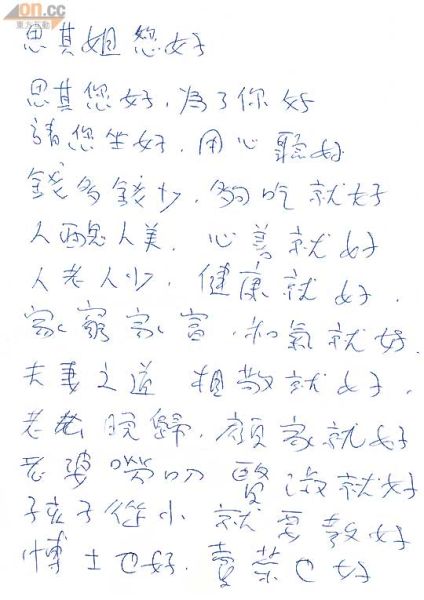 on.cc
東方互動
思其姐您好
思其您好,為了你好
請您坐好,用心聽好
錢多錢少,夠吃就好
人醜人美,心善就好
人老人少,健康就好,
家窮家富,和氣就好,
夫妻之道 相敬就好,
老老晚歸,顧家就好
老婆嘮叨 賢淑就好
孩子從小 就要教好
博士也好,賣菜也好